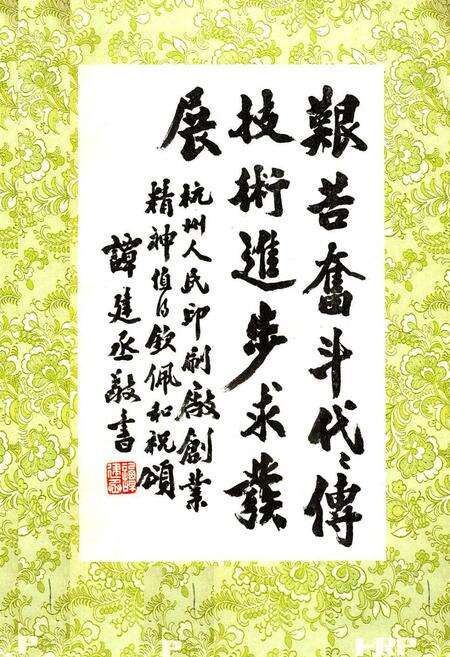 艱苦奮斗代々傳
技術進步求發
展
杭州人民印刷廠創業
精神值得欽佩和祝頌
譚建丞敬書
譚建丞
P
P
HRP